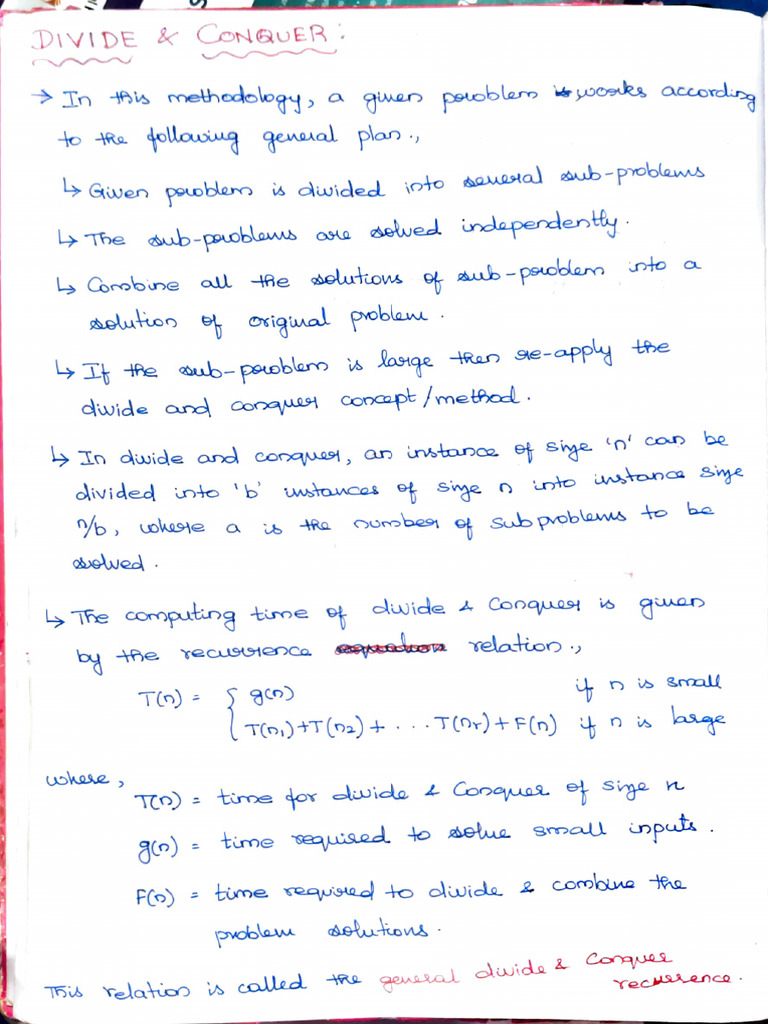 DIVIDE & CONQUER :
→ In this methodology, a given problem is works according
to the following general plan.,
↳ Given problem is divided into several sub-problems
↳ The sub-problems are solved independently.
↳ Combine all the solutions of sub-problem into a
solution of original problem.
↳ If the sub-problem is large then re-apply the
divide and conquer concept/method.
↳ In divide and conquer, an instance of size 'n' can be
divided into 'b' instances of size n into instance size
n/b, where a is the number of subproblems to be
solved.
↳ The computing time of divide & Conquer is given
by the recurrence equation relation.,
T(n) = { g(n) if n is small
T(n₁)+T(n₂)+ ... T(nᵣ)+F(n) if n is large
where,
T(n) = time for divide & Conquer of size n
g(n) = time required to solve small inputs.
F(n) = time required to divide & combine the
problem solutions.
This relation is called the general divide & Conquer
recurrence.